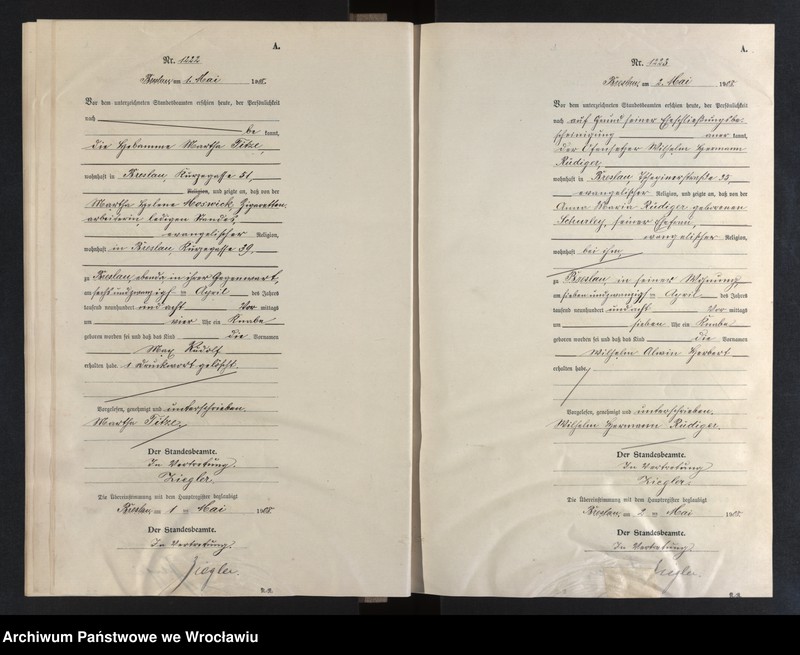 A.
Nr. 1222
Breslau, am 1. Mai 1908.
Vor dem unterzeichneten Standesbeamten erschien heute, der Persönlichkeit
nach
be kannt,
die Hebamme Martha Titze,
wohnhaft in Breslau, Kurzegasse 51,
Religion, und zeigte an, daß von der
Martha Helene Moswick, Zigaretten-
arbeiterin, ledigen Standes,
evangelischer Religion,
wohnhaft in Breslau, Kurzegasse 39,
zu Breslau, ebenda in ihrer Gegenwart,
am sechsundzwanzigsten April des Jahres
tausend neunhundert und acht Vor mittags
um vier Uhr ein Knabe
geboren worden sei und daß das Kind die Vornamen
Max Rudolf
erhalten habe. 1 Druckwort gelöscht.
Vorgelesen, genehmigt und unterschrieben.
Martha Titze.
Der Standesbeamte.
In Vertretung.
Ziegler.
Die Übereinstimmung mit dem Hauptregister beglaubigt
Breslau, am 1 ten Mai 1908.
Der Standesbeamte.
In Vertretung.
Ziegler.
A.
Nr. 1223
Breslau, am 2. Mai 1908.
Vor dem unterzeichneten Standesbeamten erschien heute, der Persönlichkeit
nach auf Grund seiner Eheschließungsbe-
scheinigung aner kannt,
der Ofensetzer Wilhelm Hermann
Rüdiger,
wohnhaft in Breslau 35,
evangelischer Religion, und zeigte an, daß von der
Anna Maria Rüdiger geborenen
seiner Ehefrau,
evangelischer Religion,
wohnhaft bei ihm,
zu Breslau, in seiner Wohnung,
am siebenundzwanzigsten April des Jahres
tausend neunhundert und acht Vor mittags
um sieben Uhr ein Knabe
geboren worden sei und daß das Kind die Vornamen
Wilhelm Alwin Herbert
erhalten habe.
Vorgelesen, genehmigt und unterschrieben.
Wilhelm Hermann Rüdiger.
Der Standesbeamte.
In Vertretung
Ziegler.
Die Übereinstimmung mit dem Hauptregister beglaubigt
Breslau, am 2. ten Mai 1908.
Der Standesbeamte.
In Vertretung
Ziegler.
Archiwum Państwowe we Wrocławiu